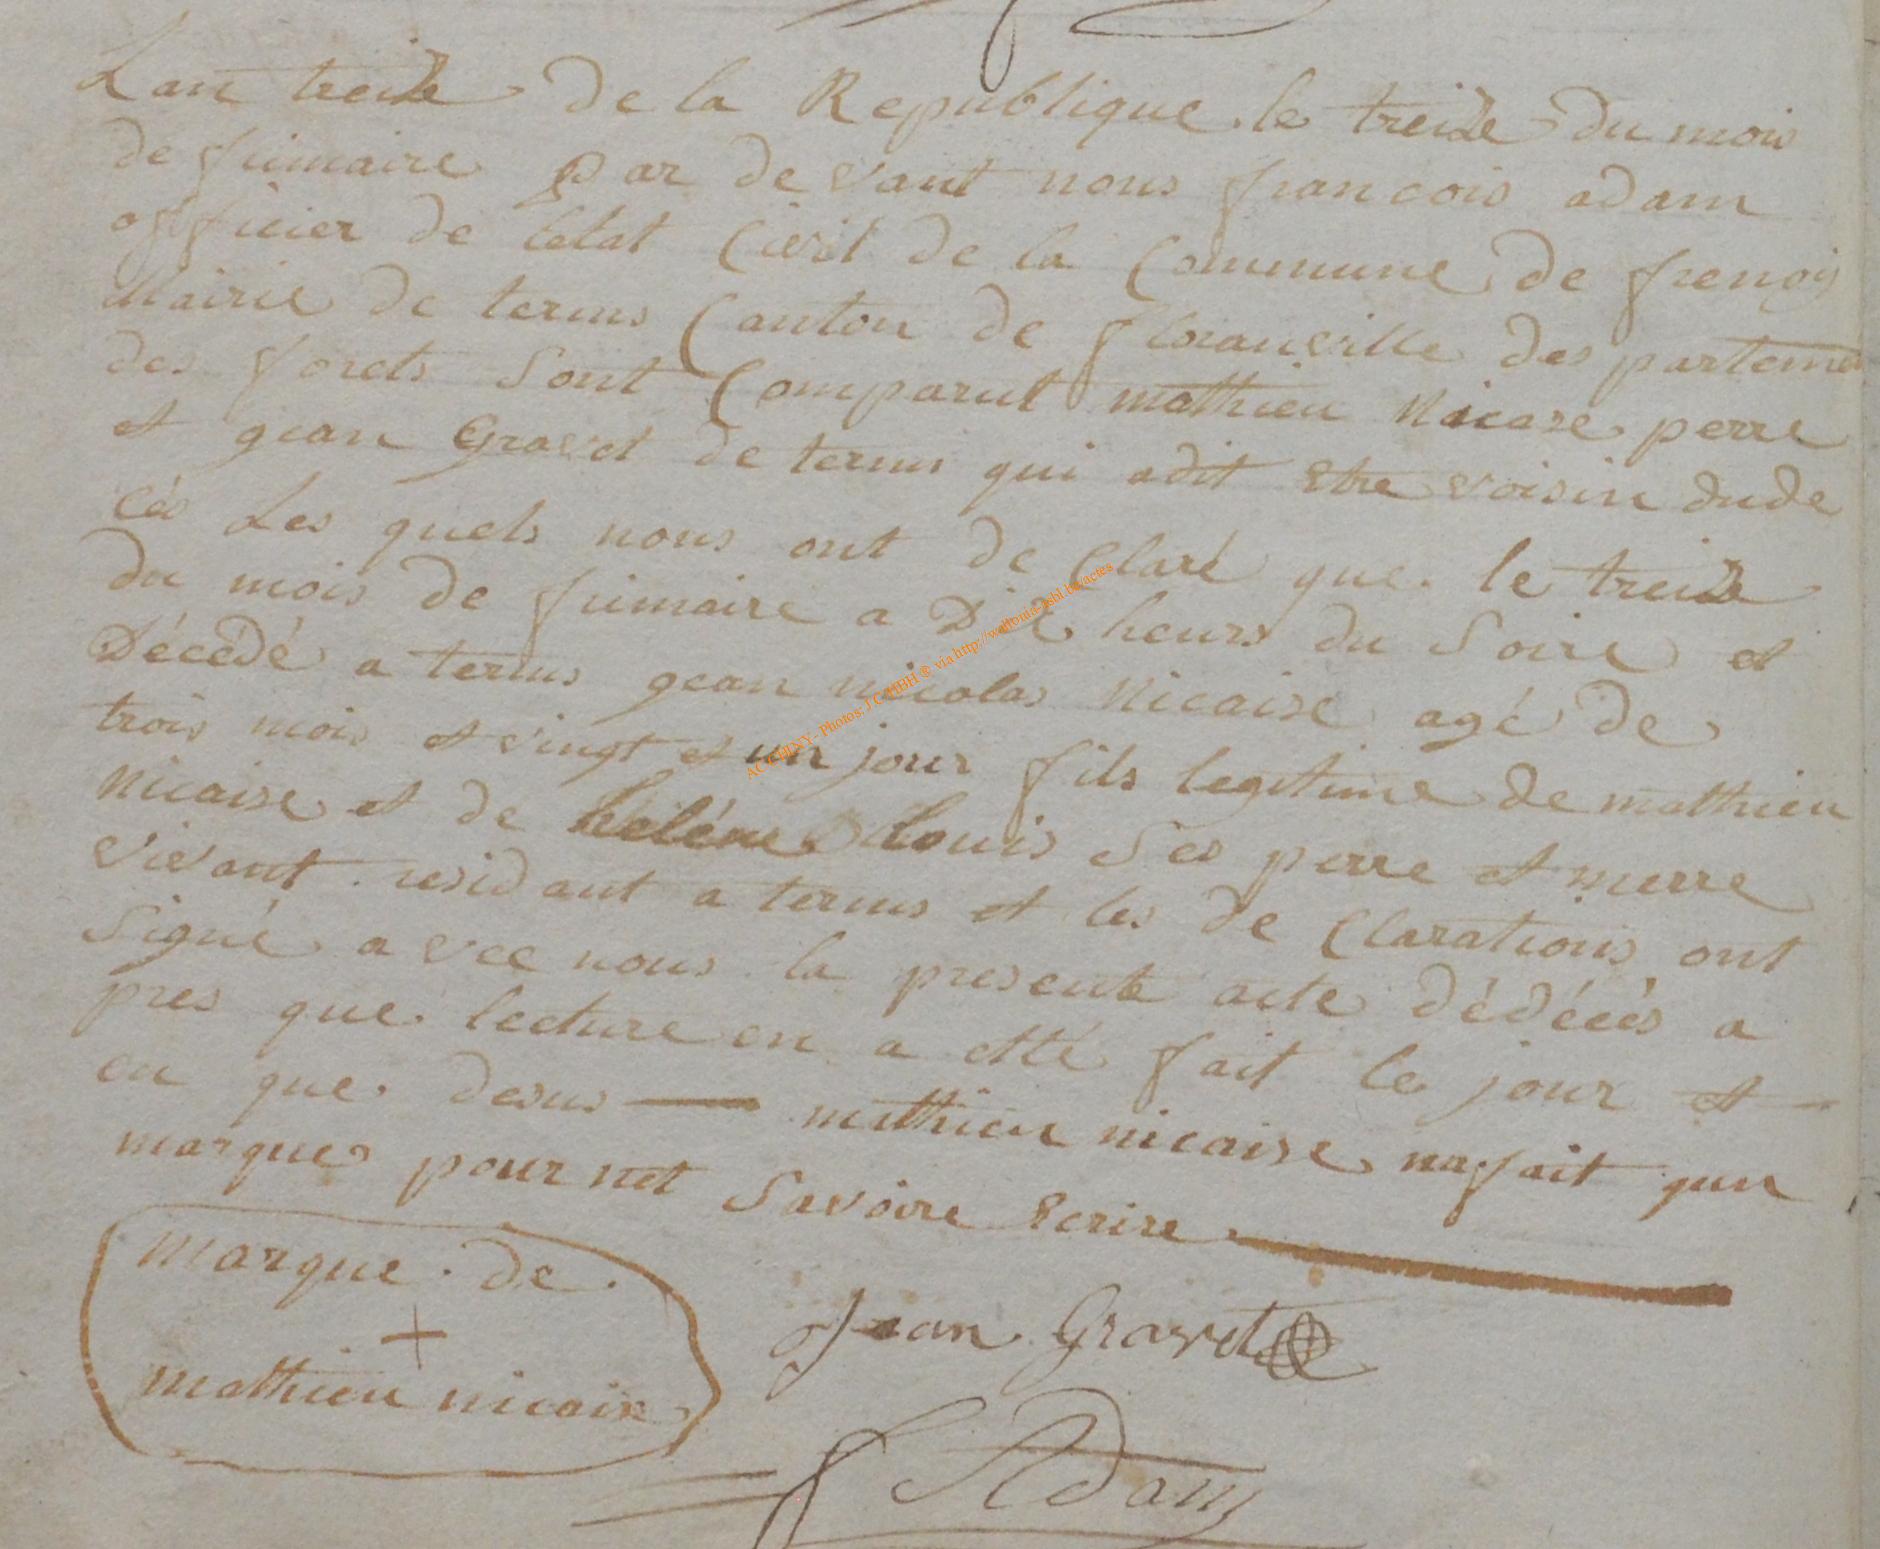 Lan treize de la Republique le treize du mois
de frimaire par devant nous francois adam
officier de letat Civil de la Commune de frenoy
Mairie de termes Canton de floranville des partemen
des forets sont Comparut mathieu Nicase perre
et gean Gravet de termes qui adit etre voisin dude
cés Les quels nous ont de Claré que le treize
du mois de frimaire a Dix heurs du Soire et
Décédé a termes gean nicolas Nicaise agé de
trois mois et vingt et un jour fils legitime de mathieu
Nicaise et de heléne Louis Ses perre et merre
vivant residant a termes et les de Clarations ont
Signé avec nous la presente acte dédécés a
pres que lecture en a etté fait le jour et
en que desus — mathieu nicaise na fait qun
marque pour net Savoire Ecrire
marque de
+
mathieu nicaise
Jean Gravet
f Adam
AC CHINY- Photos: J C HBH ® via http://wallonia-asbl.be/actes